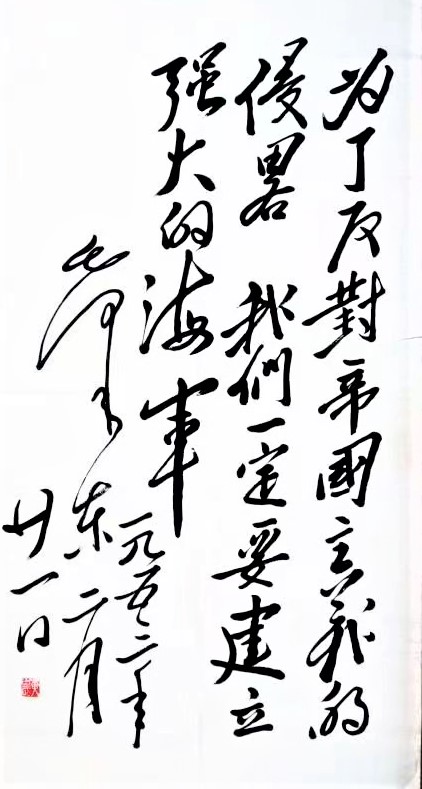 为了反對帝國主義的
侵畧 我們一定要建立
强大的海軍
毛泽東
一九五三年
二月
廿一日